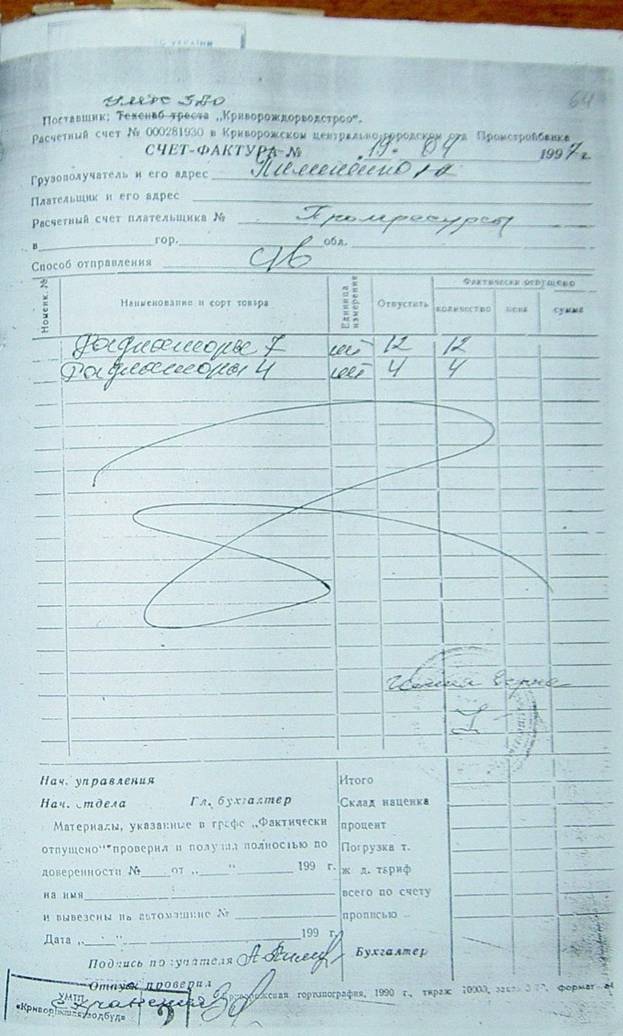 УКРАЇНИ
64
Поставщик: Техснаб треста „Криворождорводстроо“.
Расчетный счет № 000281930 в Криворожском центрально-городском отд. Промстройбанка
СЧЕТ-ФАКТУРА № 19. 04 1997 г.
Грузополучатель и его адрес
Плательщик и его адрес
Расчетный счет плательщика № Промресурсы
в гор. обл.
Способ отправления с/в
Номенк. № Наименование и сорт товара Единица измерение Отпустить Фактически отпущено
количество цена сумма
Радиаторы 7 шт 12 12
Радиаторы 4 шт 4 4
копия верна
Нач. управления Итого
Нач. отдела Гл. бухгалтер Склад наценка
Материалы, указанные в графе „Фактически процент
отпущено“ проверил и получил полностью по Погрузка т.
доверенности № от „ “ 199 г. ж. д. тариф
на имя всего по счету
и вывезены на автомашине № прописью
Дата „ “ 199 г.
Подпись покупателя Бухгалтер
Отпуск проверил
Криворожская гортипография, 1990 г., тираж 10000, формат
УМТП